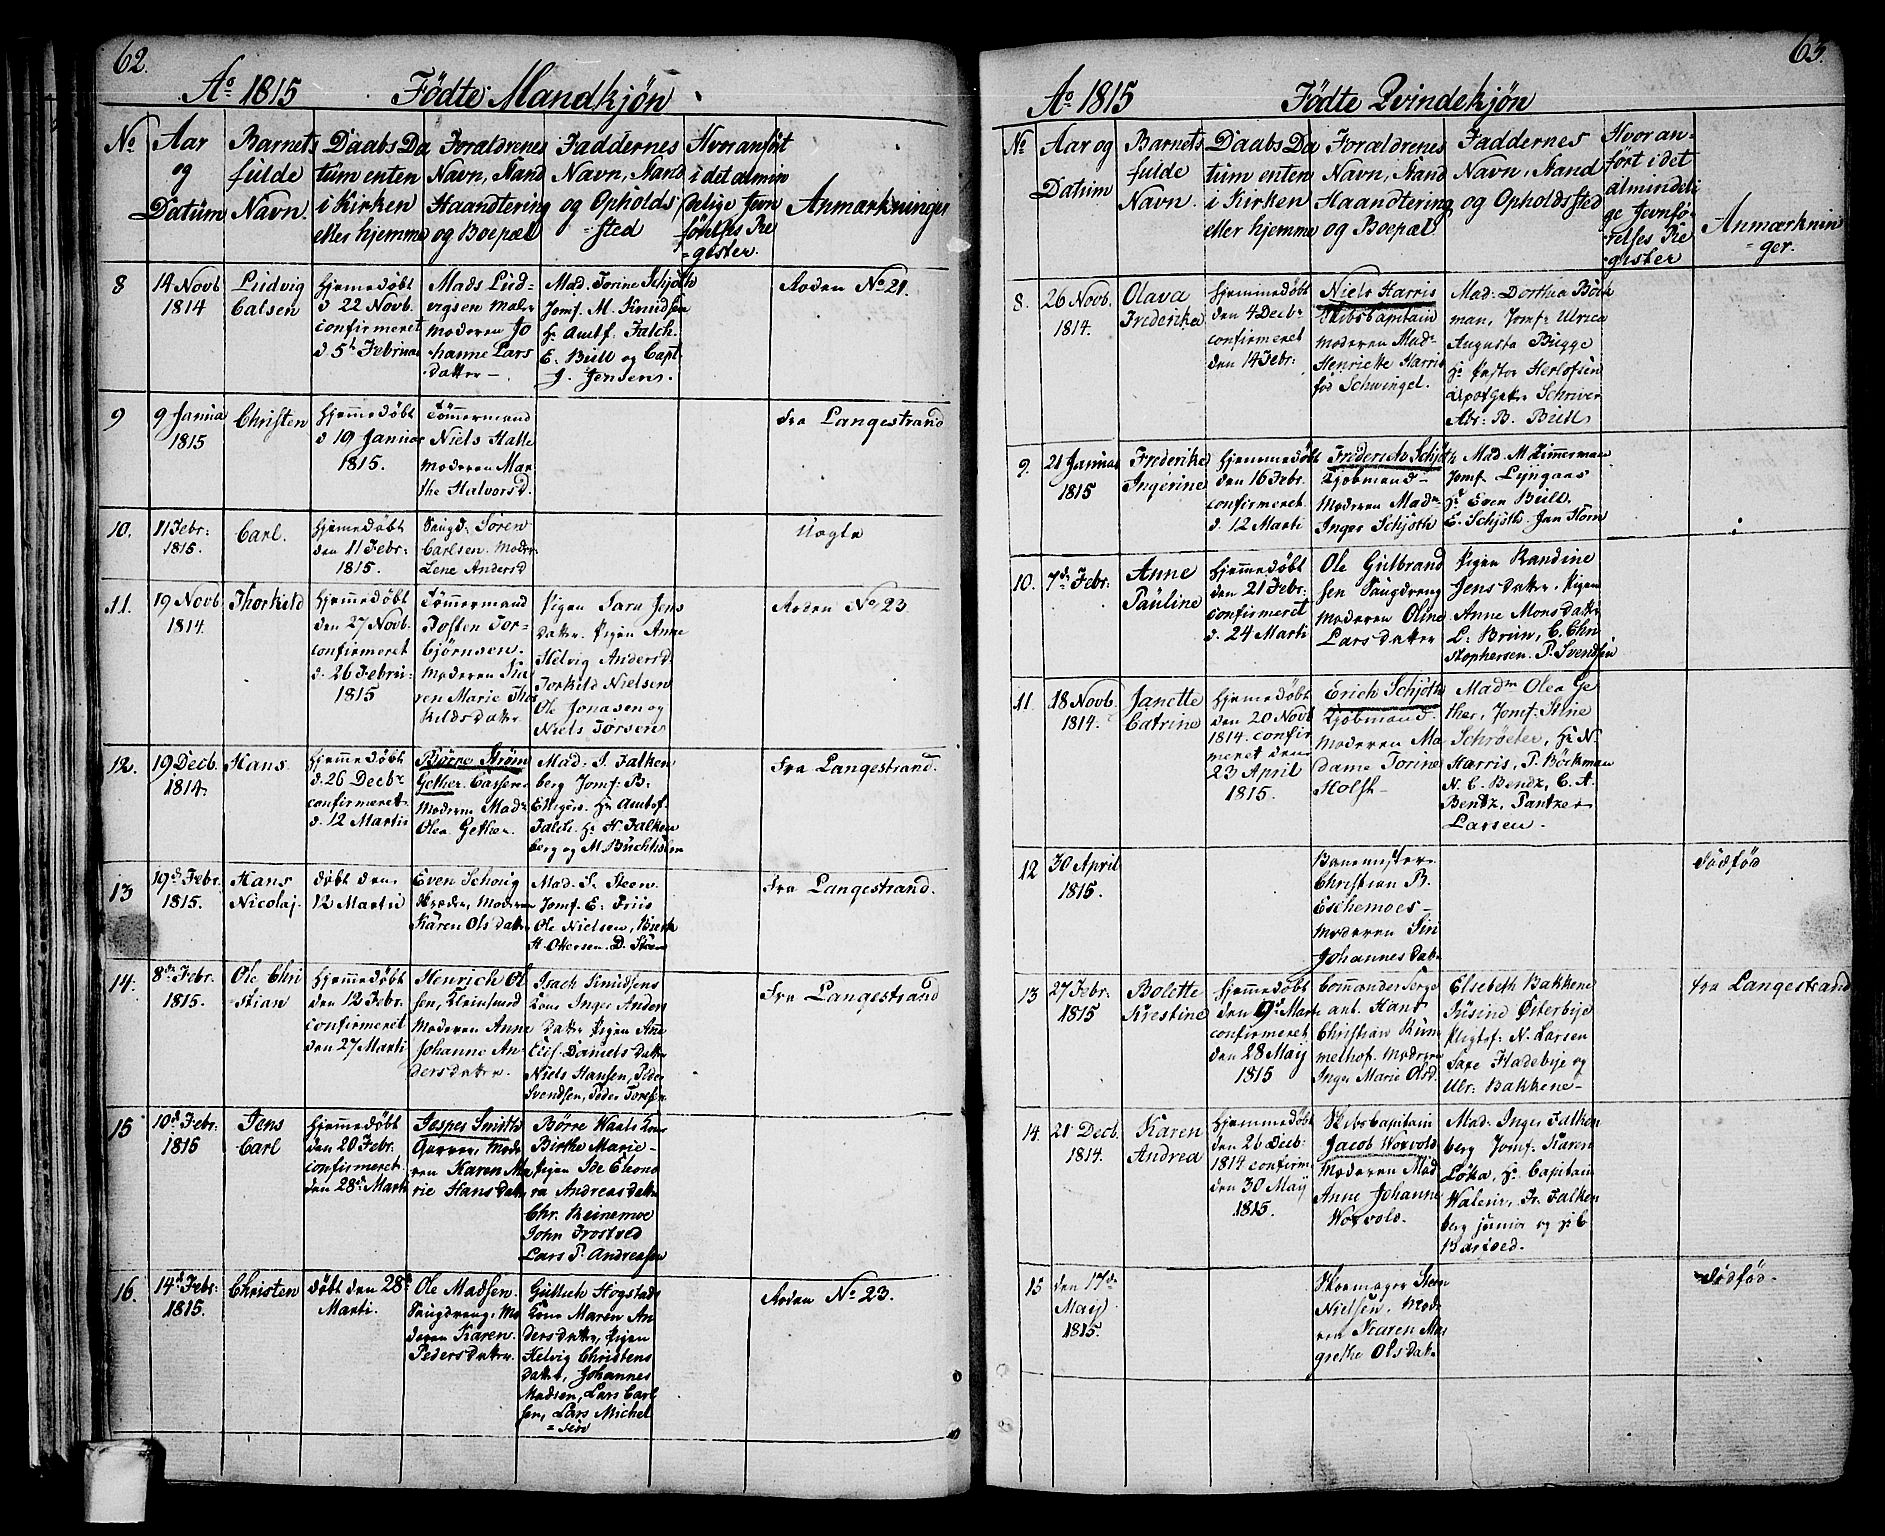 62.
Ao 1815 Fødte Mandkjøn
No
Aar og Datum
Barnets fulde Navn.
Daabs Datum enten i Kirken eller hjemme
Forældrenes Navn, Stand Haandtering og Boepæl
Faddernes Navn, Stand og Opholds=sted
Hvor anført i det almindelige Jevnførelses Re=gister.
Anmærkninger
8
14 Novb 1814
Ludvig Calsen
hjemedøbt
d 22 Novb.
confirmeret
d 5t Februar
Mads Lud-
vigsen
moderen Jo
hanne Lars
datter -
Mad. Torine Schjøth
Jomf. M. Knudsen
Hr Amtf. Falch.
E. Bull og Capt.
J. Jensens.
Aoden No 21.
9
9 Janua 1815
Christen
hjemmedøbt
d 19 Januar
1815.
Tømmermand
Niels Halle
moderen Mar
the Halvorsd.
Fra Langestrand
10.
11 Febr: 1815.
Carl.
hjemedøbt
den 11 Febr:
1815.
Søren
Carlsen. Moder
Lene Andersd
11.
19 Novb 1814.
Thorkild
hjemmedøbt
den 27 Novb.
confirmeret
d. 26 Februi-
1815
Tømmermand
Tosten Tor-
bjørnsen.
moderen Ka
ren Marie Thor
kildsdatter
Pigen Sara Jens
datter. Pigen Anne
Helvig Andersd.
Torkild Nielsen
Ole Jonasen og
Niels Torsen
Aoden No 23
12.
19 Decb 1814.
Hans
hjemmedøbt
d. 26 Decbr
confirmeret
d. 12 Martii
Bjørne Strøm
Gether. Casserer
Moderen Madm
Olea Gether.
Mad: S. Falken
berg Jomf: B.
Hr Amtsf
Falch. Hr H. Falken
berg og M. Buchholm
Fra Langestrand.
13
19d Febr. 1815.
Hans Nicolaj.
døbt den
12 Martii
Even Schoug
moderen
Karen Olsdatter
Mad. S. Steen.
Jomf. E. Friis
Ole Nielsen,
H. Ottersen. D. Steen
Fra Langestrand.
14.
8de Febr. 1815.
Ole Chri=stian
hjemmedøbt
den 12 Febr.
confirmeret
den 27 Marti
Henrich Ol
sen, Kleinsmed
Moderen Anne
Johanne An
dersdatter.
Isach Knudsens
Kone Inger Anders
datter Pigen Ane
Danielsdatter
Niels Hansen, Peder
Svendsen, Peder Toresen
Fra Langestrand
15
10d Febr: 1815
Jens Carl
hjemmedøbt
den 20 Febr.
confirmeret
den 28d Marti
Jesper Smidth
Garver, mode
ren Karen Ma
rie Hansdatter
Børre Waals Kone
Birthe Marie-
Pigen Ide Eleono
ra Andreasdatter
Chr. Reinemoe
John Frostved
Lars P. Andreasen
16.
14d Febr: 1815.
Christen
døbt den 28d
Marti.
Ole Madsen.
Saugdreng. Mo
deren Karen
Pedersdatter.
Gullich Hogstads
Kone Maren An
dersdatter, Pigen
Helvig Christens
datter, Johannes
Madsen, Lars Carl
sen, Lars Michel
=sen
Aoden No 23.
63.
Ao 1815 Fødte Qvindekjøn
No
Aar og Datum
Barnets fulde Navn.
Daabs Datum enten i Kirken eller hjemme
Forældrenes Navn, Stand Haandtering og Boepæl
Faddernes Navn, Stand og Opholdssted
Hvor anført i det almindelige Jevnførelses Register
Anmærknin=ger.
8.
26 Novb. 1814.
Olava Frederike
hjemmedøbt
den 4 Decbr
confirmeret
den 14 Febr:
Niels Harris
Skibscapitain
moderen Madm
Henriette Harris
fød Schwingel.
Mad: Dorthea Böck
man, Jomfr Ulrica
Augusta Bugge
Hr Pastor Herlofsen
Apotheker Schriver
Abr: B. Bull
9.
21 Januar 1815
Frederike Ingerine
hjemmedøbt
den 16 Febr.
confirmeret
d. 12 Marti
Friderich Schjøth
Kjøbmand-
Moderen Madm
Inger Schjøth
Mad. M Zimmerman
Jomf. Lyngaas
Hr Even Bull.
E. Schjøth Jan Stoen
10.
7de Febr.
Anne Pauline
hjemmedøbt
den 21 Febr:
confirmeret
d. 24 Marti
Ole Gulbrand
sen Saugdreng
moderen Oline
Larsdatter
Pigen Randine
Jensdatter, Pigen
Anne Monsdatter
L. Bruun, C. Chri
stophersen. P. Svendsen
11.
18 Novb. 1814.
Janette Catrine
hjemmedøbt
den 20 Novb
1814. confir
meret den
23 April
1815.
Erich Schjøth
Kjøbmand.
moderen Ma
dame Torine
Holst-
Madm Olea Ge
ther, Jomf: Stine
Schröeter, Hr N.
Harris, P. Böckman
N. C. Bendz, C. A.
Bentz, Pantzer
Larsen.
12
30 April 1815.
Christian B.
Eschemoes-
Moderen Siri
Johannesdatr
Dødfød
13
27 Febr: 1815
Bolette Kirestine
hjemmedøbt
den 9d Marti
confirmeret
den 28 May
1815
Commandersergeant. Hans
Christian Rum
melhof. Moderen
Inger Marie Olsd.
Elsebeth Bakkene
Gusine Østerbye
Pligtsf. N. Larsen
Saxe Fladebye og
Ulr. Bakkene-
fra Langestrand
14.
21 Decb. 1814.
Karen Andrea
hjemmedøbt
den 26 Decb:
1814 confirm
den 30 May
1815.
Skibscapitain
Jacob Woxvold.
moderen Mad
Anne Johanne
Woxvold.
Mad. Inger Falken
berg Jomf: Karen
Løka, Hr Capitain
Waleur, Fr. Falken
berg junior og
Barsoed.
15
den 17de May 1815.
Skoemager Steen
Nielsen. Mode
ren Karen Mar
grethe Olsdatr
Dødfød.